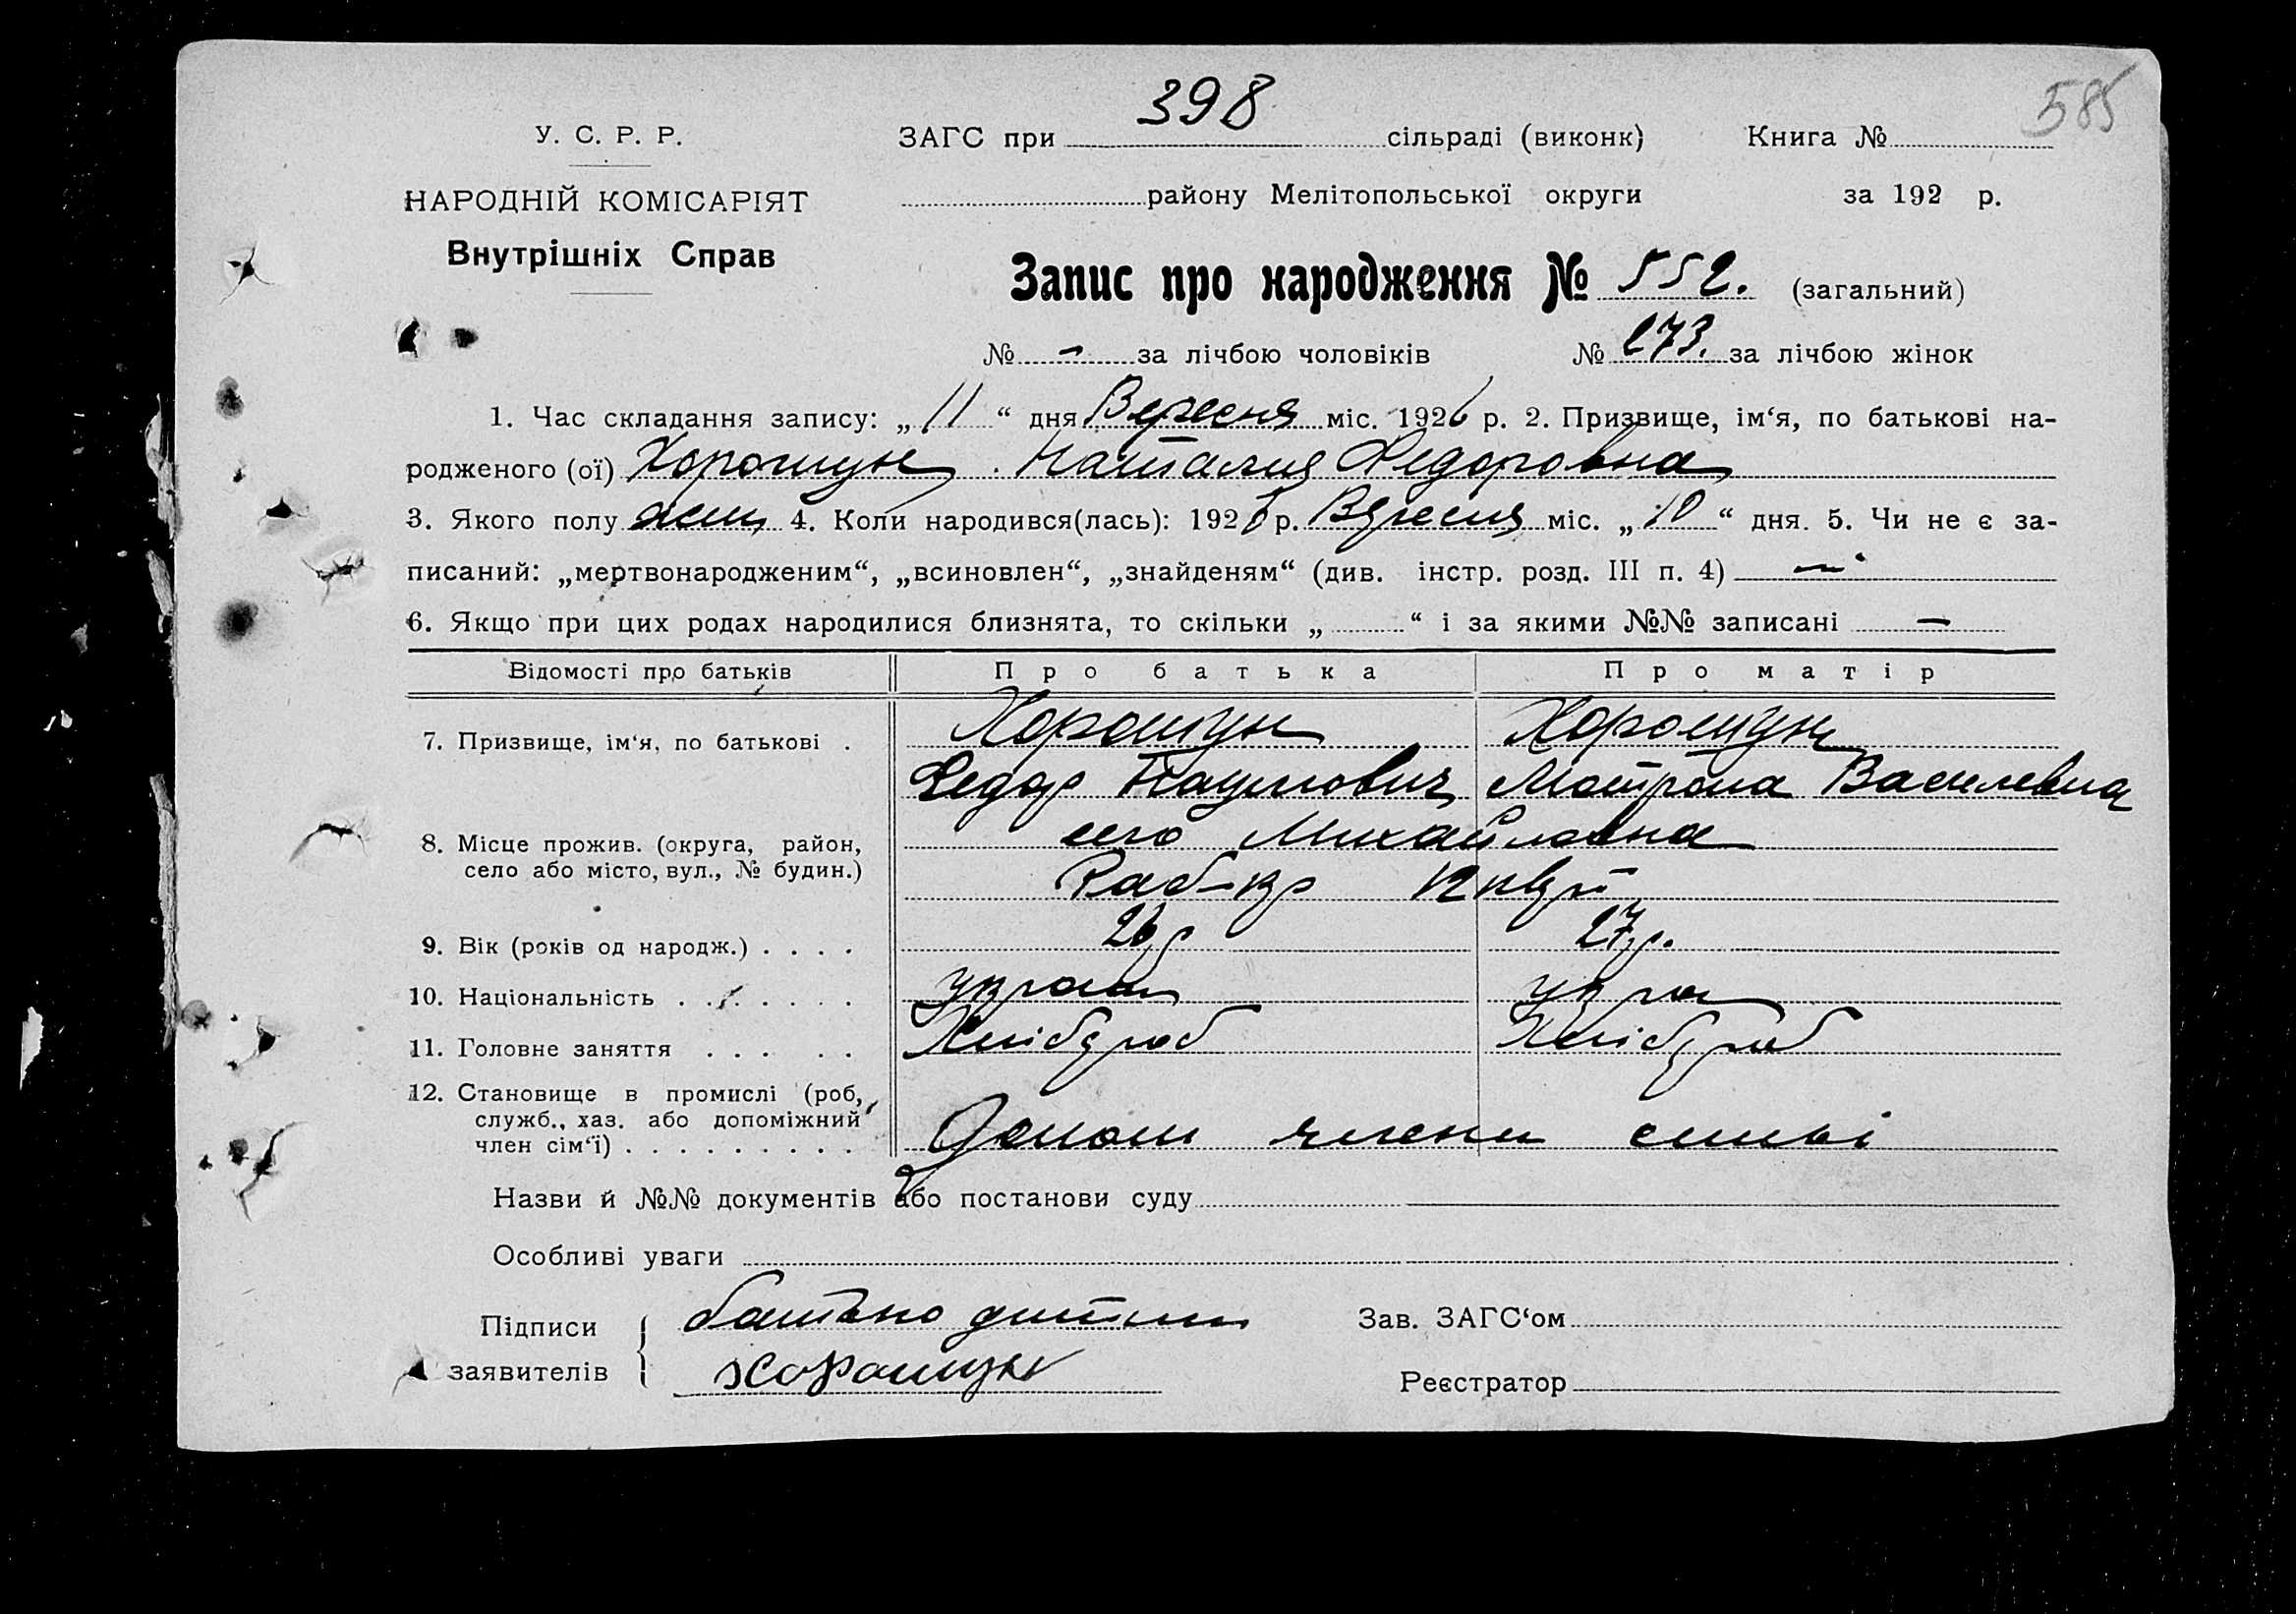 398
585
У. С. Р. Р.
ЗАГС при сільраді (виконк)
Книга №
НАРОДНІЙ КОМІСАРІЯТ
району Мелітопольської округи
за 192 р.
Внутрішніх Справ
Запис про народження № 552. (загальний)
№ - за лічбою чоловіків № 273. за лічбою жінок
1. Час складання запису: „ 11 “ дня Вересня міс. 1926 р. 2. Призвище, ім‘я, по батькові на-
родженого (ої) Хорошун Наталия Федоровна
3. Якого полу жен 4. Коли народився(лась): 1926 р. Вересня міс. „ 10 “ дня. 5. Чи не є за-
писаний: „мертвонародженим“, „всиновлен“, „знайденям“ (див. інстр. розд. III п. 4) —
6. Якщо при цих родах народилися близнята, то скільки „ “ і за якими №№ записані —
Відомості про батьків Про батька Про матір
7. Призвище, ім‘я, по батькові . Хорошун Хорошун
Федор Наумович Мотрона Василевна
8. Місце прожив. (округа, район, село Михайловка
село або місто, вул., № будин.)
9. Вік (років од народж.) . . . . 26 р 27 р.
10. Національність . . . . . . . украин укра
11. Головне заняття . . . . . Хлібороб Хлібороб
12. Становище в промислі (роб,
служб., хаз. або допоміжний
член сім‘ї) . . . . . . . . . . Допом члени симьі
Назви й №№ документів або постанови суду
Особливі уваги
Підписи батько дитини
Зав. ЗАГС‘ом
заявителів Хорошун
Реєстратор